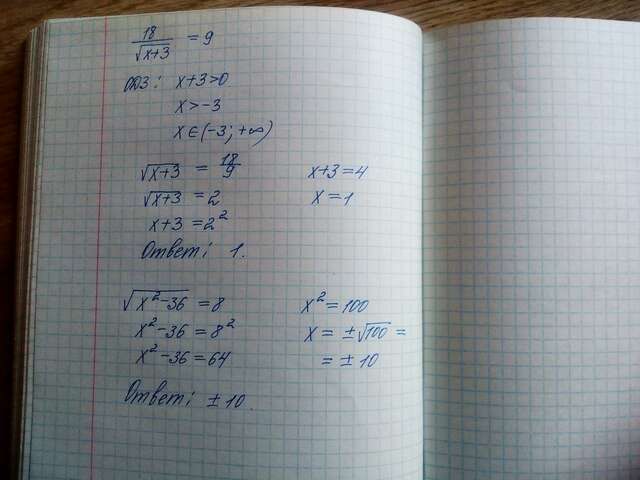 18/√x+3 = 9
ОДЗ: x+3>0
x>-3
x∈(-3; +∞)
√x+3 = 18/9
√x+3 = 2
x+3 = 2²
x+3=4
x=1
Ответ: 1.
√x²-36 = 8
x²-36 = 8²
x²-36 = 64
x² = 100
x = ±√100 =
= ± 10
Ответ: ± 10.